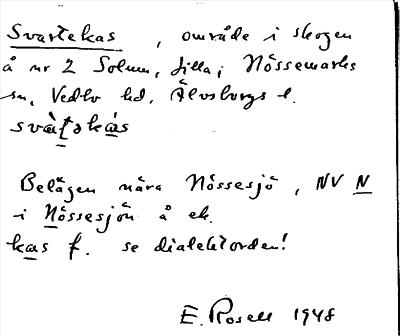 Svartekas, område i skogen
å nr 2 Solum, Lilla, Nössemarks
sn, Vedbo hd, Älvsborgs l.
svàʈəkás
Belägen nära Nössesjö, NV N
i Nössesjön å ek.
kas f. se dialektorden!
E. Rosell 1948